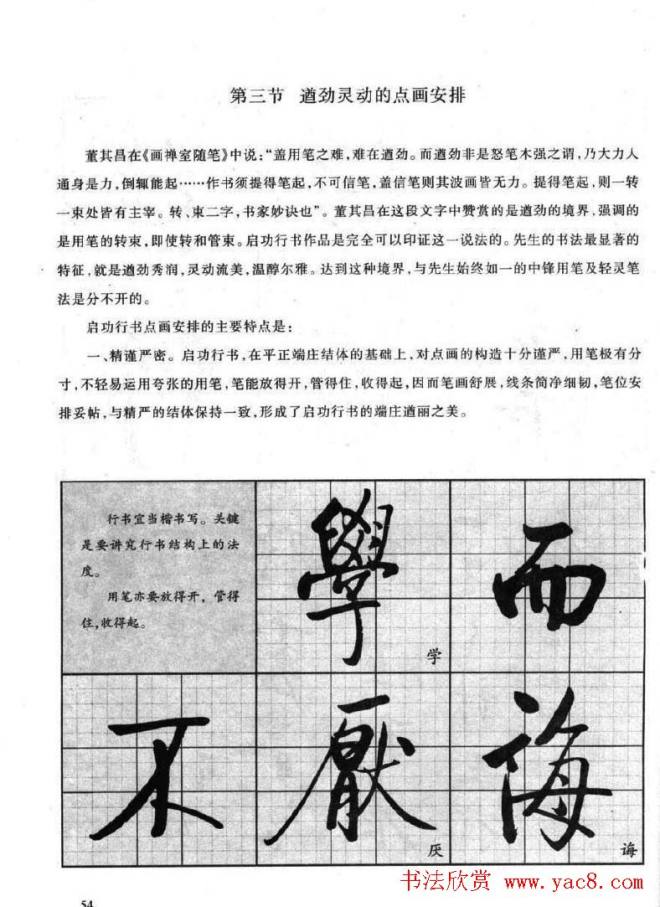 第三节 遒劲灵动的点画安排
董其昌在《画禅室随笔》中说：“盖用笔之难，难在遒劲。而遒劲非是怒笔木强之谓，乃大力人
通身是力，倒辄能起……作书须提得笔起，不可信笔，盖信笔则其波画皆无力。提得笔起，则一转
一束处皆有主宰。转、束二字，书家妙诀也”。董其昌在这段文字中赞赏的是遒劲的境界，强调的
是用笔的转束，即使转和管束。启功行书作品是完全可以印证这一说法的。先生的书法最显著的
特征，就是遒劲秀润，灵动流美，温醇尔雅。达到这种境界，与先生始终如一的中锋用笔及轻灵笔
法是分不开的。
启功行书点画安排的主要特点是：
一、精谨严密。启功行书，在平正端庄结体的基础上，对点画的构造十分谨严，用笔极有分
寸，不轻易运用夸张的用笔，笔能放得开，管得住，收得起，因而笔画舒展，线条简净细韧，笔位安
排妥帖，与精严的结体保持一致，形成了启功行书的端庄遒丽之美。
行书宜当楷书写。关键
是要讲究行书结构上的法
度。
用笔亦要放得开，管得
住，收得起。
學
学
而
不
厭
厌
誨
诲
54
书法欣赏 www.yac8.com